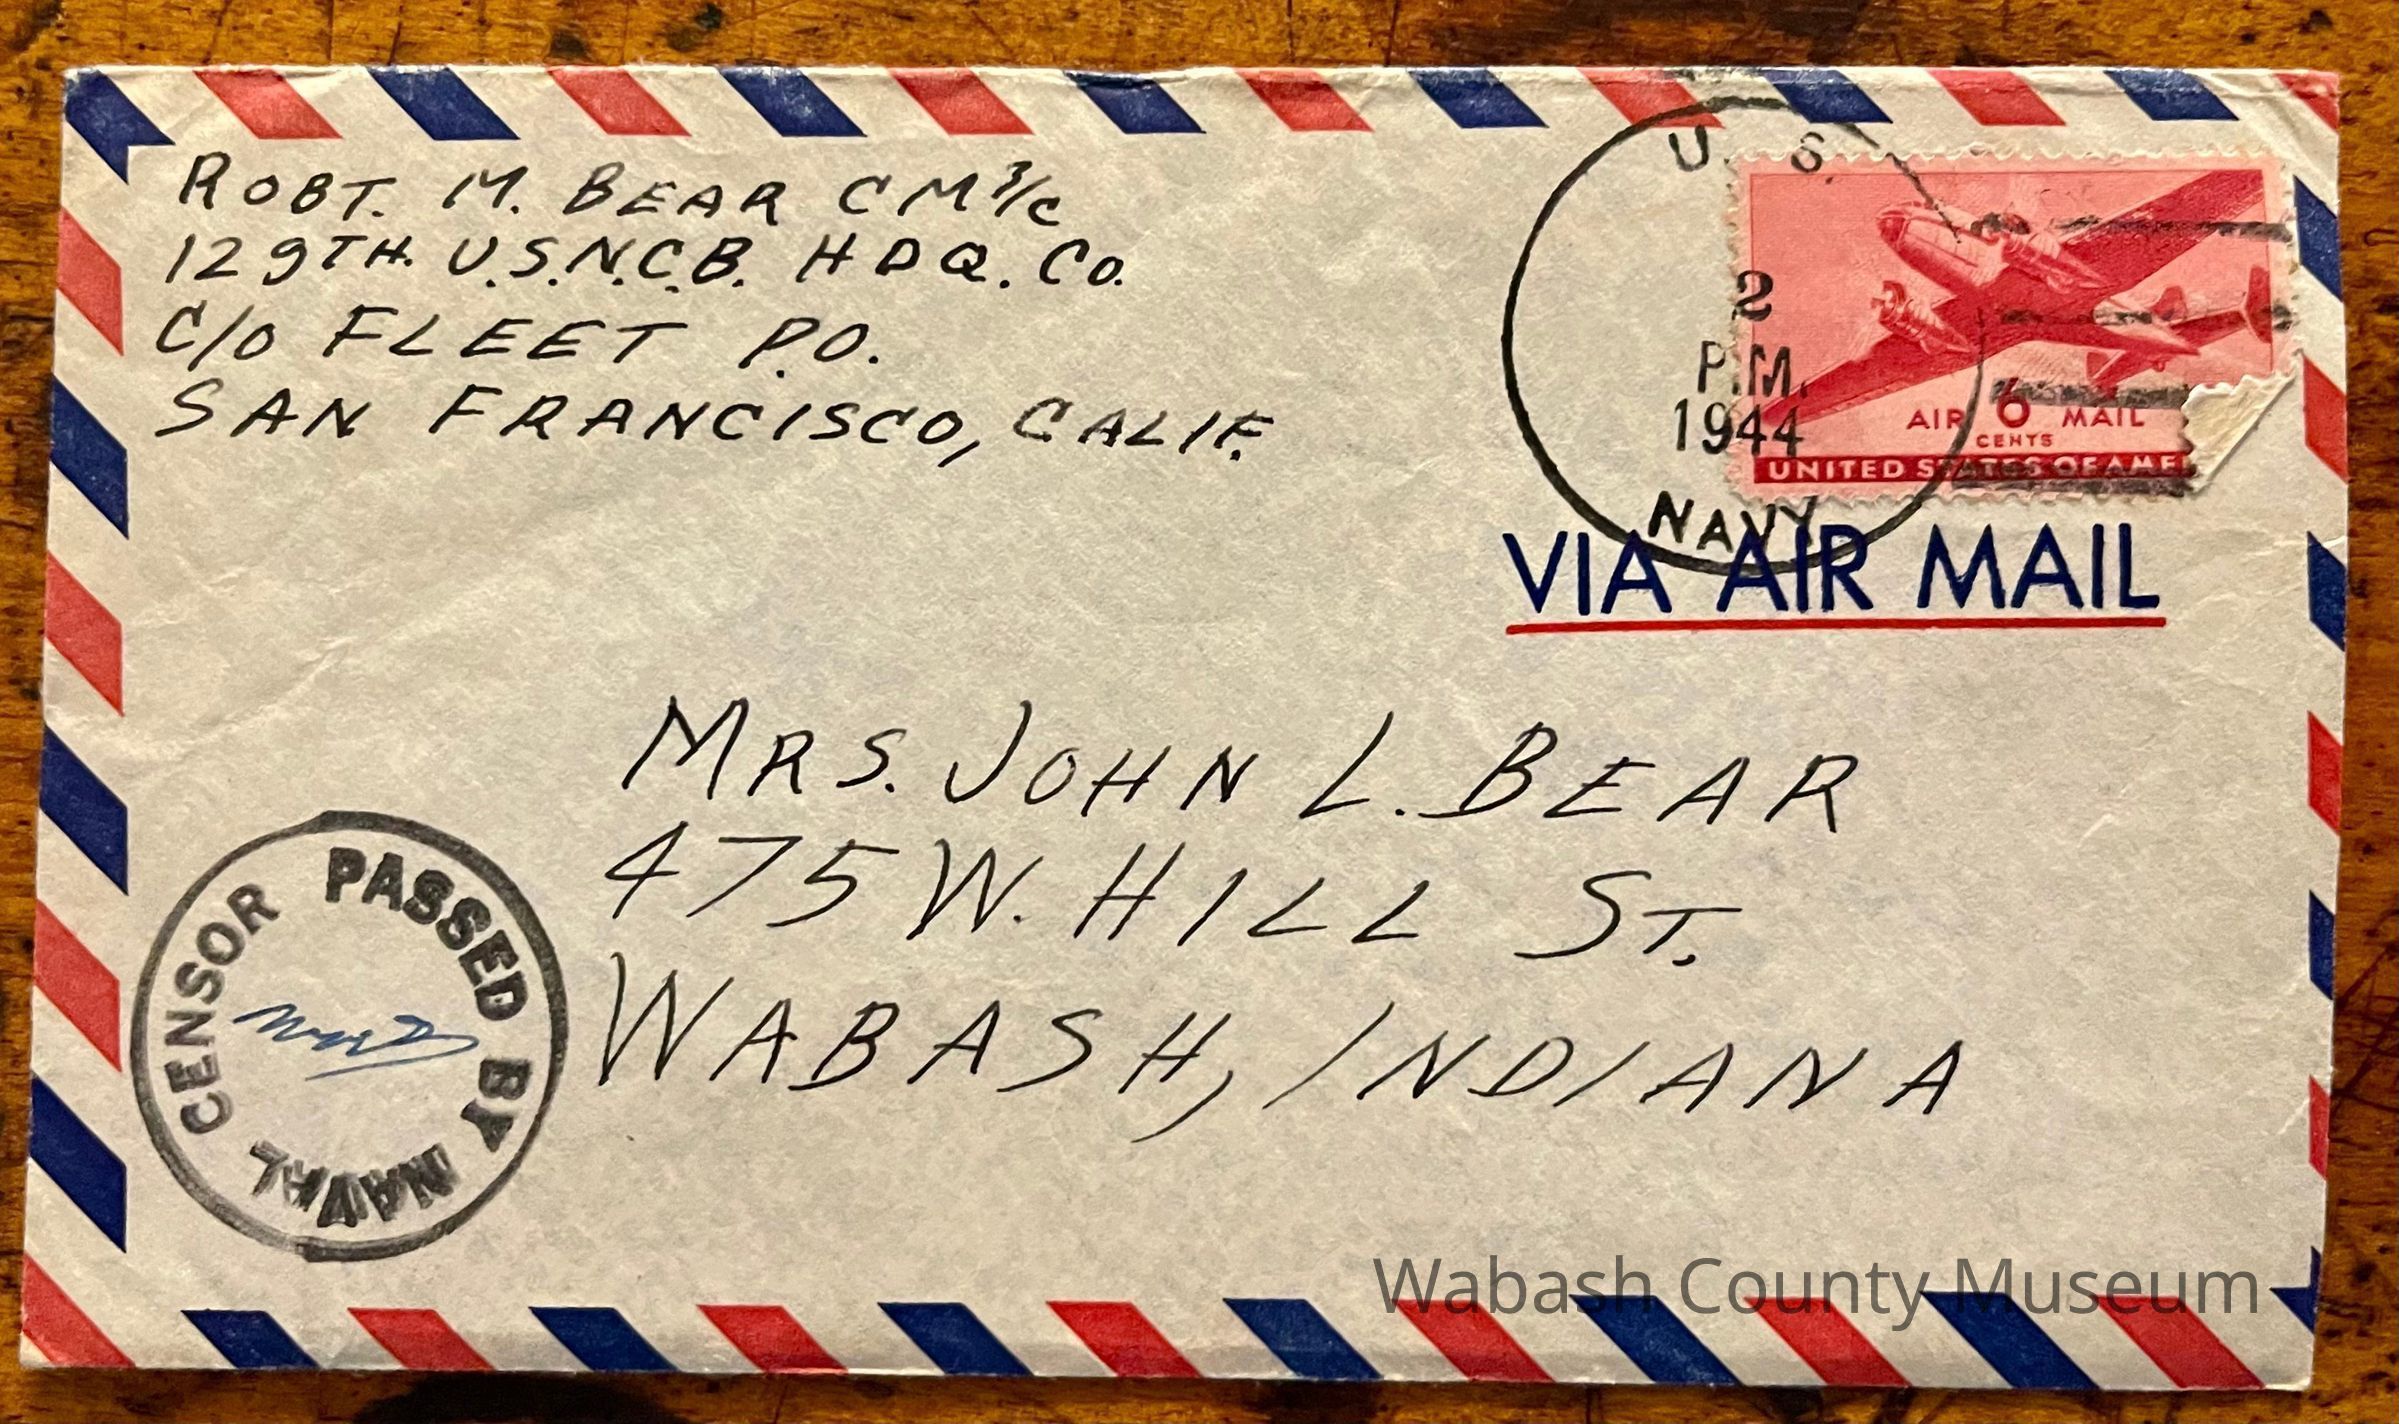 ROBT. M. BEAR CM3/C
129TH. U.S.N.C.B. HDQ. CO.
C/O FLEET P.O.
SAN FRANCISCO, CALIF.
U. S.
2
P.M.
1944
NAVY
AIR 6 MAIL
CENTS
UNITED STATES OF AME
VIA AIR MAIL
MRS. JOHN L. BEAR
475 W. HILL ST.
WABASH, INDIANA
PASSED BY NAVAL CENSOR
Wabash County Museum